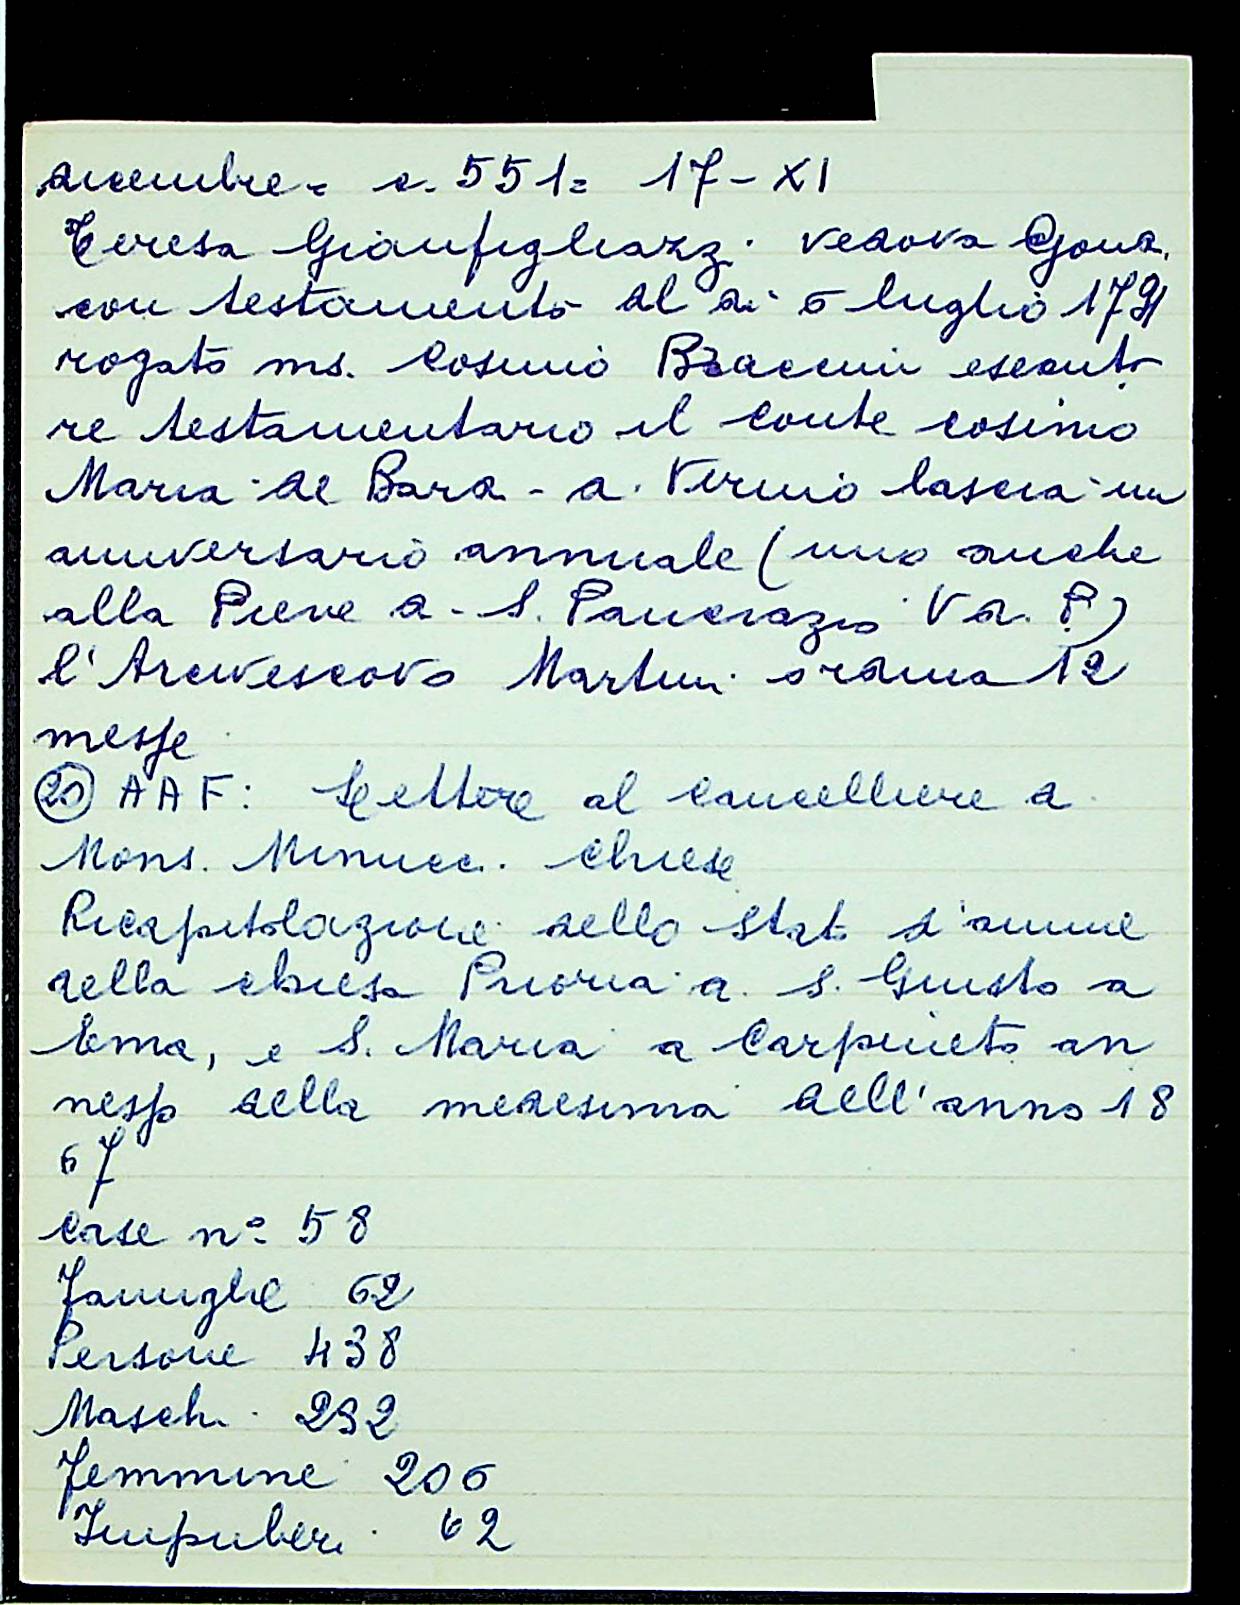 dicembre = c. 551 = 17 - XI
Teresa Gianfigliazzi vedova Gondi
con testamento del di 5 luglio 1791
rogato ms. Cosimo Braccini esecuto
re testamentario il conte cosimo
Maria de Bardi - di Vernio lascia un
anniversario annuale (uno anche
alla Pieve di - S. Pancrazio V d. P.)
l'Arcivescovo Martini ordina 12
messe
(20) AAF: Lettere al cancelliere di
Mons. Minucci chiese
Ricapitolazione dello stato d'anime
della chiesa Prioria di S. Giusto a
Ema, e S. Maria a Carpineto an
nesso della medesima dell'anno 18
67
case nº 58
Famiglie 62
Persone 438
Maschi 232
Femmine 206
Impuberi 62